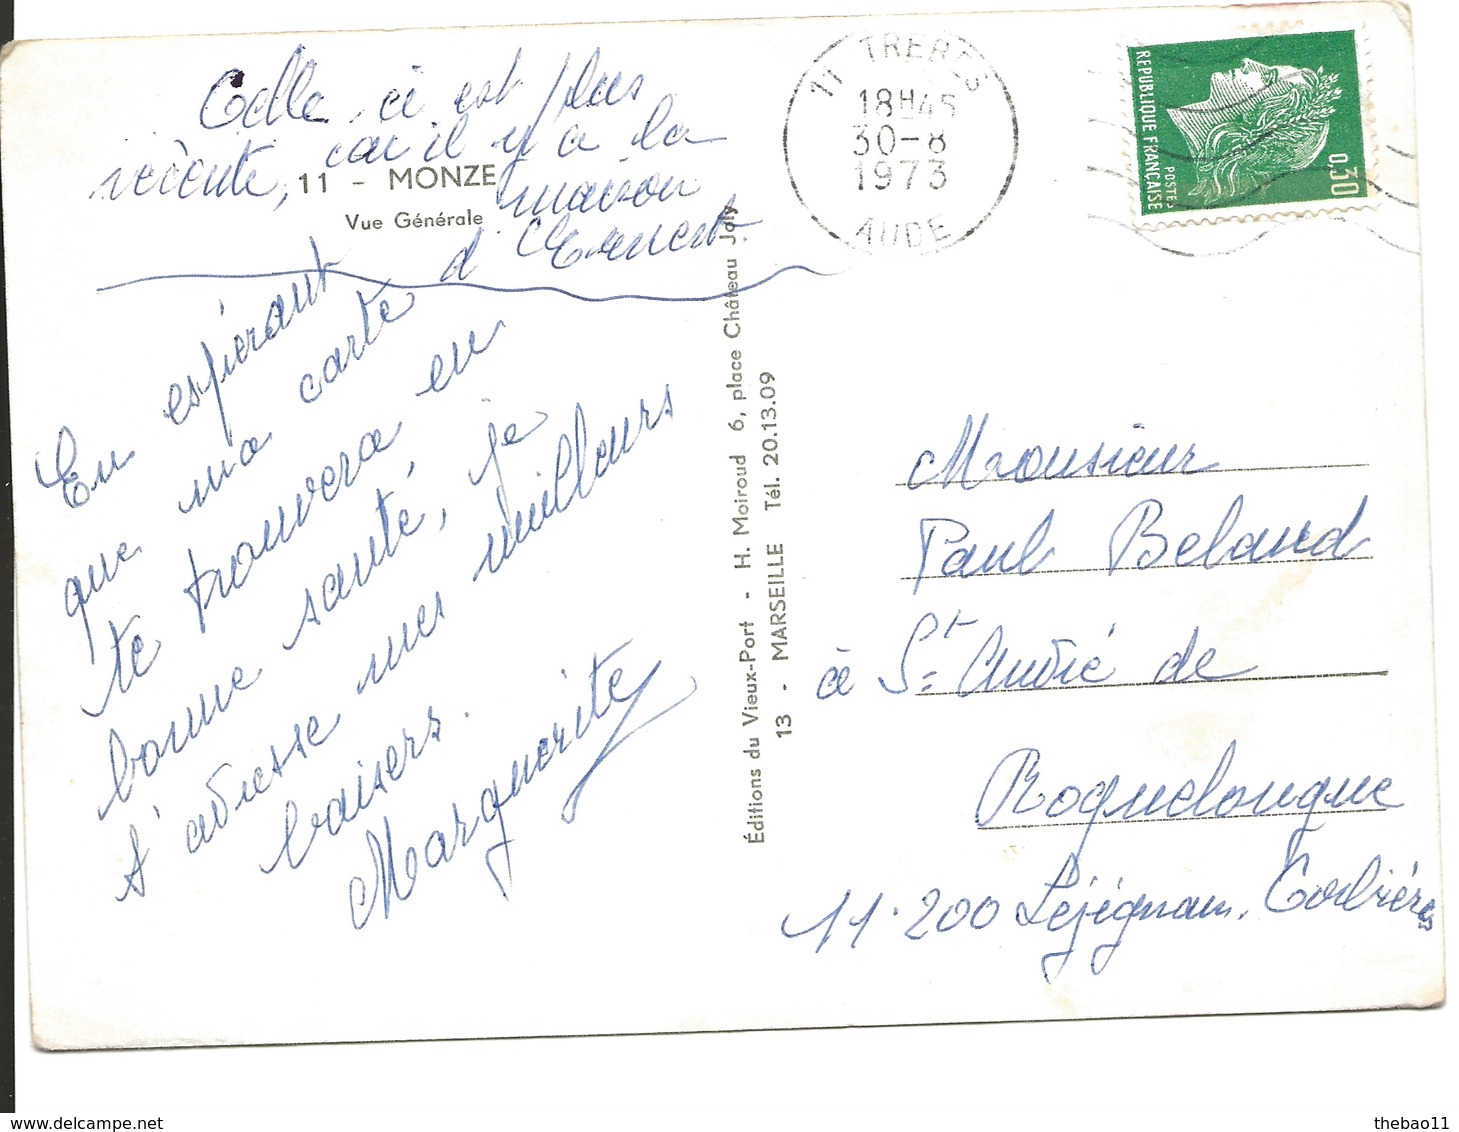 Celle ci est plus
récente, car il y a la
maison
d'Ernest.
11 - MONZE
Vue Générale
En espérant
que ma carte
te trouvera en
bonne santé, je
t'adresse mes meilleurs
baisers.
Marguerite
Éditions du Vieux-Port - H. Moiroud 6, place Château Joly
13 - MARSEILLE Tél. 20.13.09
11 TREBES
18H45
30-8
1973
AUDE
REPUBLIQUE FRANÇAISE
POSTES
0,30
Monsieur
Paul Belaud
à St André de
Roquelongue
11.200 Léjégnan. Corbières
thebao11